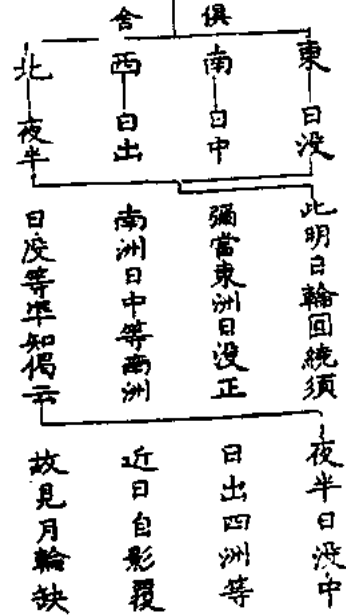 俱舍
東 南 西 北
日没 日中 日出 夜半
此明日輪回繞須
彌當東洲日没正
南洲日中等西洲
日没等準知偈云
夜半日没中
日出四洲等
近日自影覆
故見月輪缺